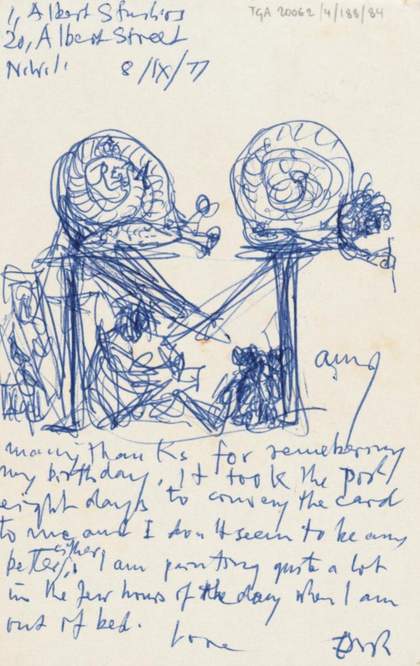 1, Albert Studios
20, Albert Street
TGA 20062/4/188/84
8/IX/77
many thanks for remebering
my birthday. It took the post
eight days to convey the card
to me and I don't seem to be any
better either. I am painting quite a lot
in the few hours of the day when I am
out of bed.
love